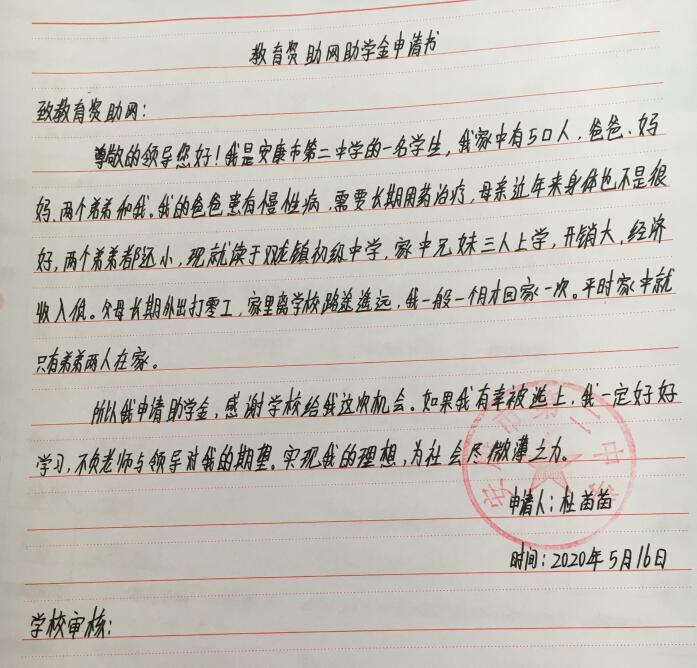 教育资助网助学金申请书
致教育资助网：
尊敬的领导您好！我是安康市第二中学的一名学生，我家中有5口人，爸爸、妈
妈、两个弟弟和我。我的爸爸患有慢性病，需要长期用药治疗，母亲近年来身体也不是很
好，两个弟弟都还小，现就读于双龙镇初级中学，家中兄妹三人上学，开销大，经济
收入低。父母长期外出打零工，家里离学校路途遥远，我一般一个月才回家一次。平时家中就
只有弟弟两人在家。
所以我申请助学金，感谢学校给我这次机会。如果我有幸被选上，我一定好好
学习，不负老师与领导对我的期望。实现我的理想，为社会尽微薄之力。
安康市第二中学
申请人：杜苗苗
时间：2020年5月16日
学校审核：